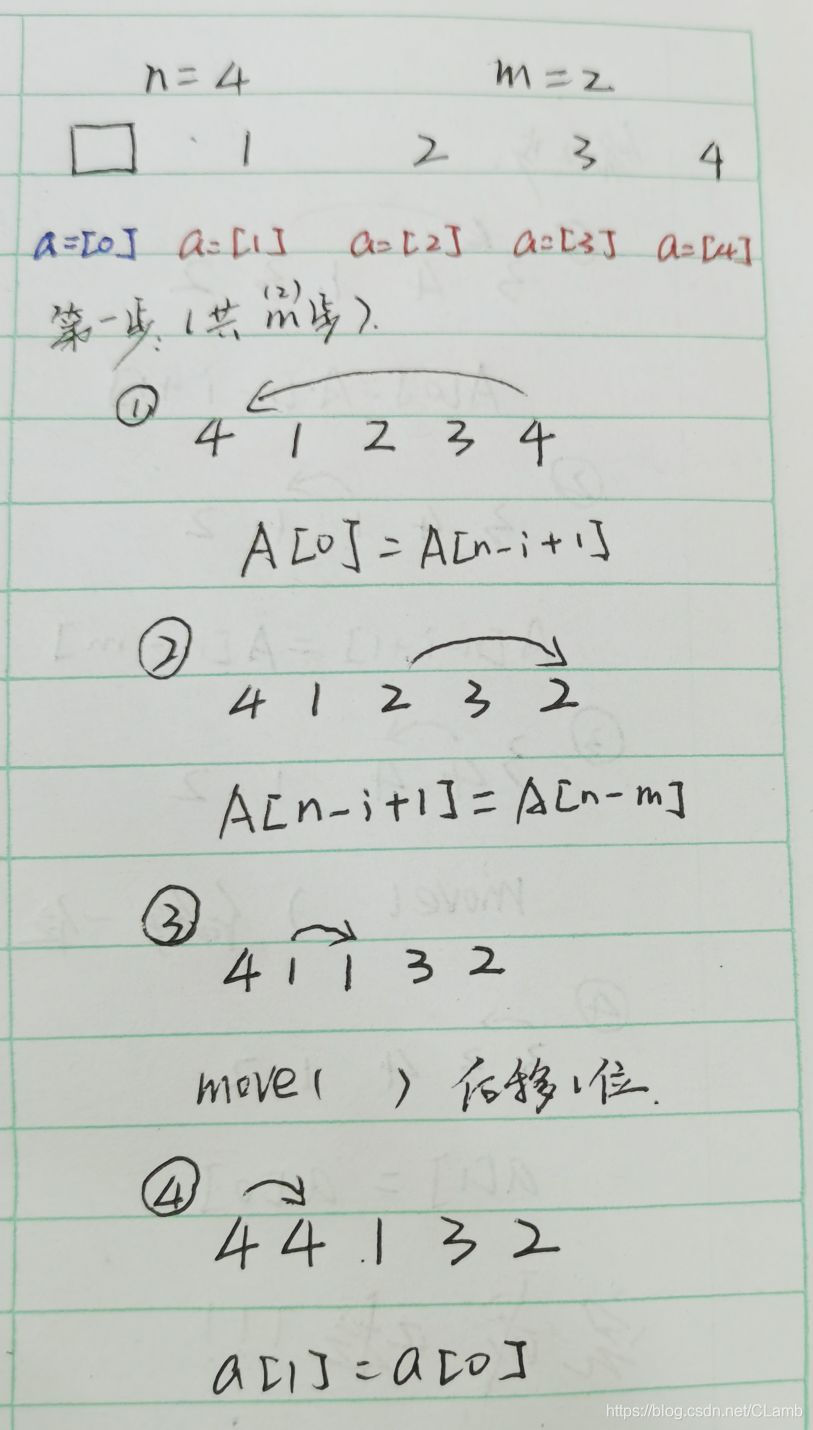 n=4 m=2
1 2 3 4
a=[0] a=[1] a=[2] a=[3] a=[4]
(2)
第一步:(共m步).
① 4 1 2 3 4
A[0]=A[n-i+1]
②
4 1 2 3 2
A[n-i+1]=A[n-m]
③
4 1 1 3 2
move( ) 后移1位.
④
4 4 1 3 2
a[1]=a[0]
https://blog.csdn.net/CLamb